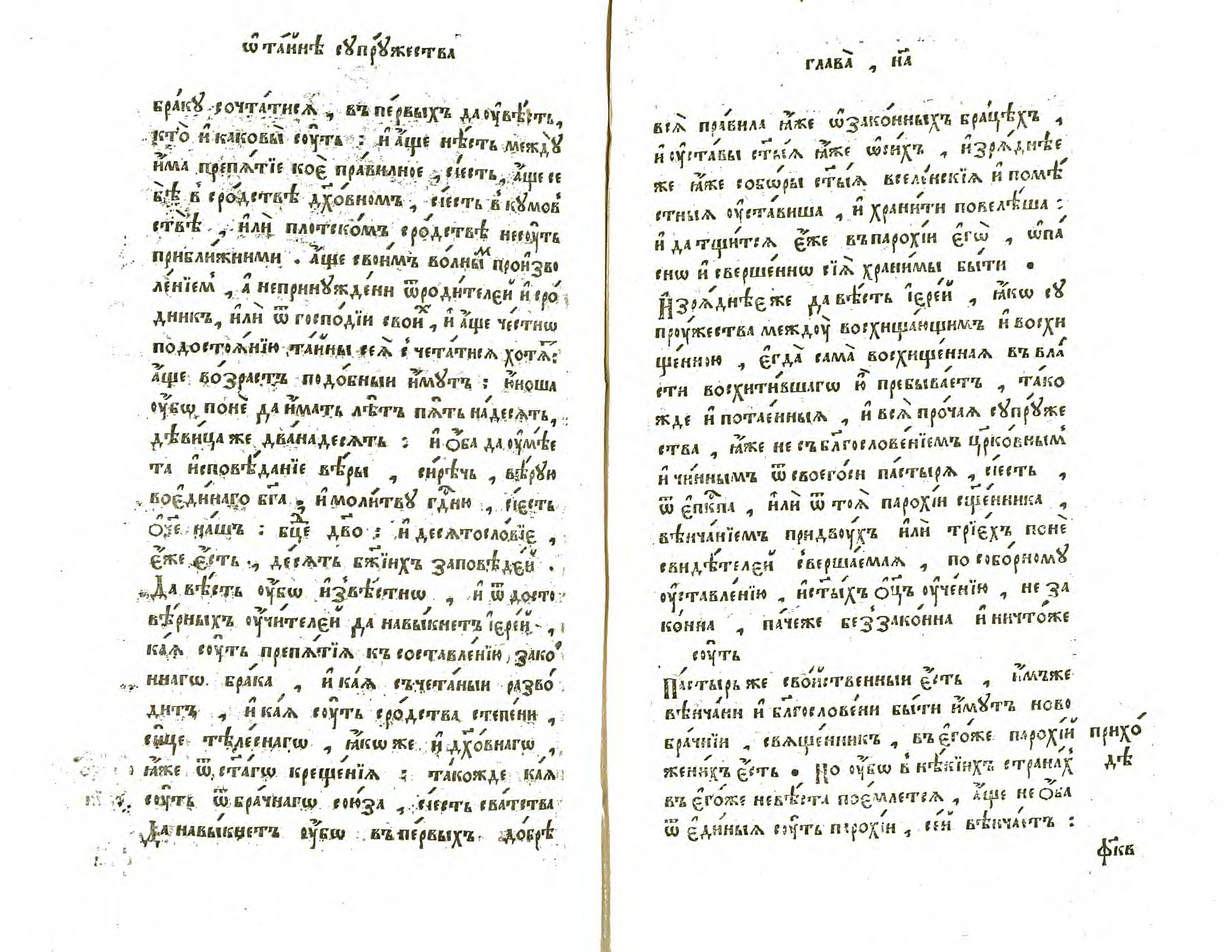 Ѡ҆ та́йнѣ сꙋпрꙋ́жества
бра́кꙋ сочта́тисѧ , въ пе́рвыхъ да ᲂу҆вѣ́сть,
кто̀ и҆ каковы̀ сꙋ́ть : и҆ а҆́ще нѣ́сть междꙋ̀
и҆́ма препѧ́тїе коѐ пра́вилное , сїе́сть, а҆́ще не
бѣ̀ в҆ сро́дствѣ дх҃о́вномъ , сїе́сть в҆ кꙋмов̾
ствѣ̀ , и҆лѝ плотско́мъ сро́дствѣ несꙋ́ть
прибли́жними . а҆́ще свои́мъ во́лны́м произво
ле́нїем̾ , а҆ непринꙋжде́ни ѿроди́телей и҆ сро́
дникъ, и҆лѝ ѿ господі́и свои́х , и҆ а҆́ще че́стнѡ
подостоѧ́нїю та́йны сеѧ̀ с҆четатисѧ хотѧ̀т:
а҆́ще во́зрастъ подо́бныи и҆́мꙋтъ : ю҆́ноша
ᲂу҆́бѡ понѐ да и҆́мать лѣ́тъ пѧ́ть на́десѧть,
дѣви́ца же два́надесѧть : и҆ ѻ҆́ба да ᲂу҆мѣ́е
та и҆сповѣ́данїе вѣ́ры , си́рѣчь , вѣ́рꙋю
вое҆ди́наго бг҃а , и҆ моли́твꙋ гдⷭ҇ню , сїе́сть
ѻ҆́ч҃е на́шъ : бц҃е дв҃о : и҆ десѧтосло́вїе ,
є҆́же є҆́сть , де́сѧть бж҃їихъ за́повѣдей .
Да вѣ́сть ᲂу҆́бѡ и҆звѣ́стнѡ , и҆ ѿ досто
вѣ́рныхъ ᲂу҆чи́телей да навы́кнетъ і҆ере́й ,
ка́ѧ сꙋ́ть препѧ́тїѧ къ составле́нїю зако́
ннагѡ бра́ка , и҆ ка́ѧ съчета́ныи разво́
дитъ , и҆ ка́ѧ сꙋ́ть сро́дства степе́ни ,
си́це тѣле́снагѡ , ꙗ҆́кѡ же и҆ дх҃о́внагѡ ,
ꙗ҆́же ѿ ст҃а́гѡ креще́нїѧ : та́кожде ка́ѧ
сꙋ́ть ѿ бра́чнагѡ сою́за , сїе́сть сва́тства
Да навы́кнетъ ᲂу҆́бѡ въ пе́рвыхъ до́брѣ
глава̀ , н҃а
всѧ̀ пра́вила ꙗ҆́же ѡ҆ зако́нныхъ бра́цѣхъ ,
и҆ ᲂу҆ста́вы ст҃ы́ѧ ꙗ҆́же ѡ҆ си́хъ , и҆зрѧ́днѣе
же ꙗ҆́же собѡ́ры ст҃ы́ѧ вселе́нскїѧ и҆ помѣ́
стныѧ ᲂу҆ста́виша , и҆ храни́ти повелѣ́ша :
и҆ да тщи́тсѧ є҆́же въ паро́хїи є҆гѡ̀ , ѡ҆па́
снѡ и҆ сверше́ннѡ сїѧ̀ храни́мы бы́ти .
И҆зрѧ́днѣе же да вѣ́сть і҆ере́й , ꙗ҆́кѡ сꙋ
прꙋ́жества междꙋ̀ восхища́ющимъ и҆ восхи
ще́нною , є҆гда̀ сама̀ восхище́нная въ вла́
сти восхити́вшагѡ ю҆̀ пребыва́етъ , та́ко
жде и҆ потае́нныѧ , и҆ всѧ̀ про́чаѧ сꙋпрꙋ́же
ства , ꙗ҆́же не съ бл҃гослове́нїемъ цр҃ко́вным̾
и҆ чи́ннымъ ѿ своего́си па́стырѧ , сїе́сть ,
ѿ є҆пⷭ҇кпа , и҆лѝ ѿ тоѧ̀ паро́хїи сщ҃е́нника ,
вѣнча́нїемъ придвою́хъ и҆лѝ трїе́хъ понѐ
свидѣ́телей с҆верша́емаѧ , по собо́рномꙋ
ᲂу҆ставле́нїю , и҆ ст҃ы́хъ ѻ҆ц҃ъ ᲂу҆че́нїю , не за
ко́нна , па́чеже без̾зако́нна и҆ ничто́же
сꙋ́ть
Па́стырь же сво́йственныи є҆́сть , и҆́мъже
вѣнча́ни и҆ бл҃гослове́ни бы́ти и҆́мꙋтъ ново
бра́чнїи , свѧще́нникъ , въ є҆го́же паро́хїи прихо́
жени́хъ є҆́сть . Но ᲂу҆́бѡ в҆ нѣ́кїихъ страна́х дѣ
въ є҆го́же невѣ́ста пое́млетсѧ , а҆́ще не ѻ҆́ба
ѿ є҆ди́ныѧ сꙋ́ть паро́хїи , се́й вѣнча́етъ :
ф҃кв